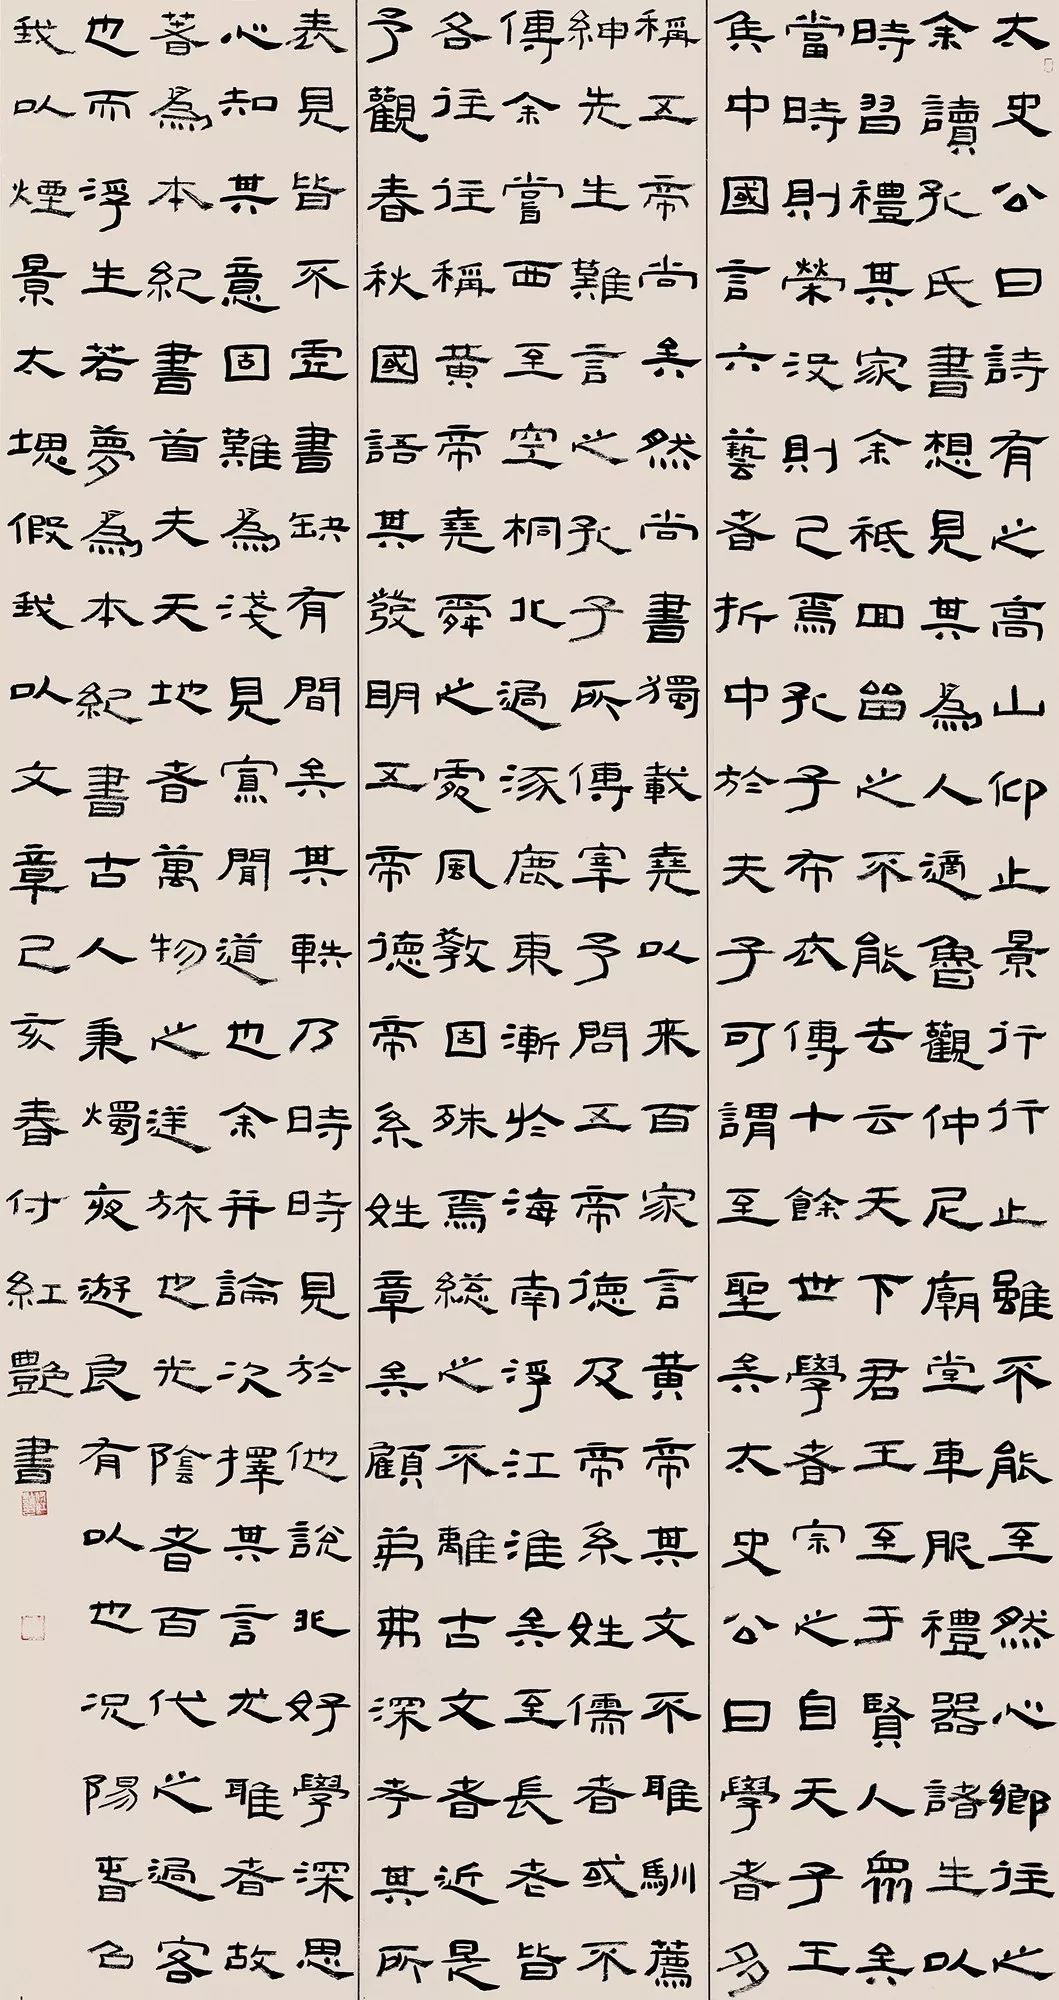 太史公曰詩有之高山仰止景行行止雖不能至然心鄉往之
余讀孔氏書想見其為人適魯觀仲尼廟堂車服禮器諸生以
時習禮其家余祗回留之不能去云天下君王至于賢人眾矣
當時則榮沒則已焉孔子布衣傳十餘世學者宗之自天子王
矦中國言六藝者折中於夫子可謂至聖矣太史公曰學者多
稱五帝尚矣然尚書獨載堯以来百家言黃帝其文不雅馴薦
紳先生難言之孔子所傳宰予問五帝德及帝系姓儒者或不
傳余嘗西至空桐北過涿鹿東漸於海南浮江淮矣至長老皆
各往往稱黃帝堯舜之處風教固殊焉總之不離古文者近是
予觀春秋國語其發明五帝德帝系姓章矣顧弟弗深考其所
表見皆不虛書缺有間矣其軼乃時時見於他說非好學深思
心知其意固難為淺見寡聞道也余并論次擇其言尤雅者故
著為本紀書首夫天地者萬物之逆旅也光陰者百代之過客
也而浮生若夢為本紀書古人秉燭夜遊良有以也況陽春召
我以煙景太塊假我以文章己亥春付紅艷書